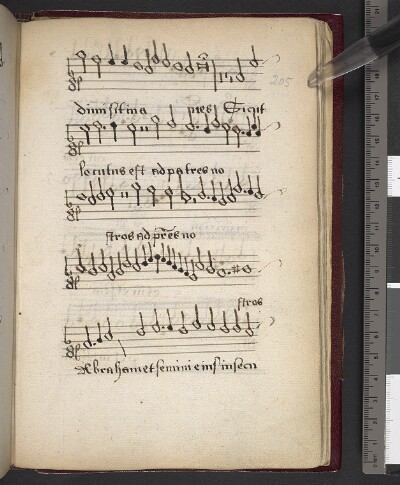 205
dimisit ina nies Sicut
locutus est ad patres no
stros ad p̃res no
stros
Abraham et semini eius in secu